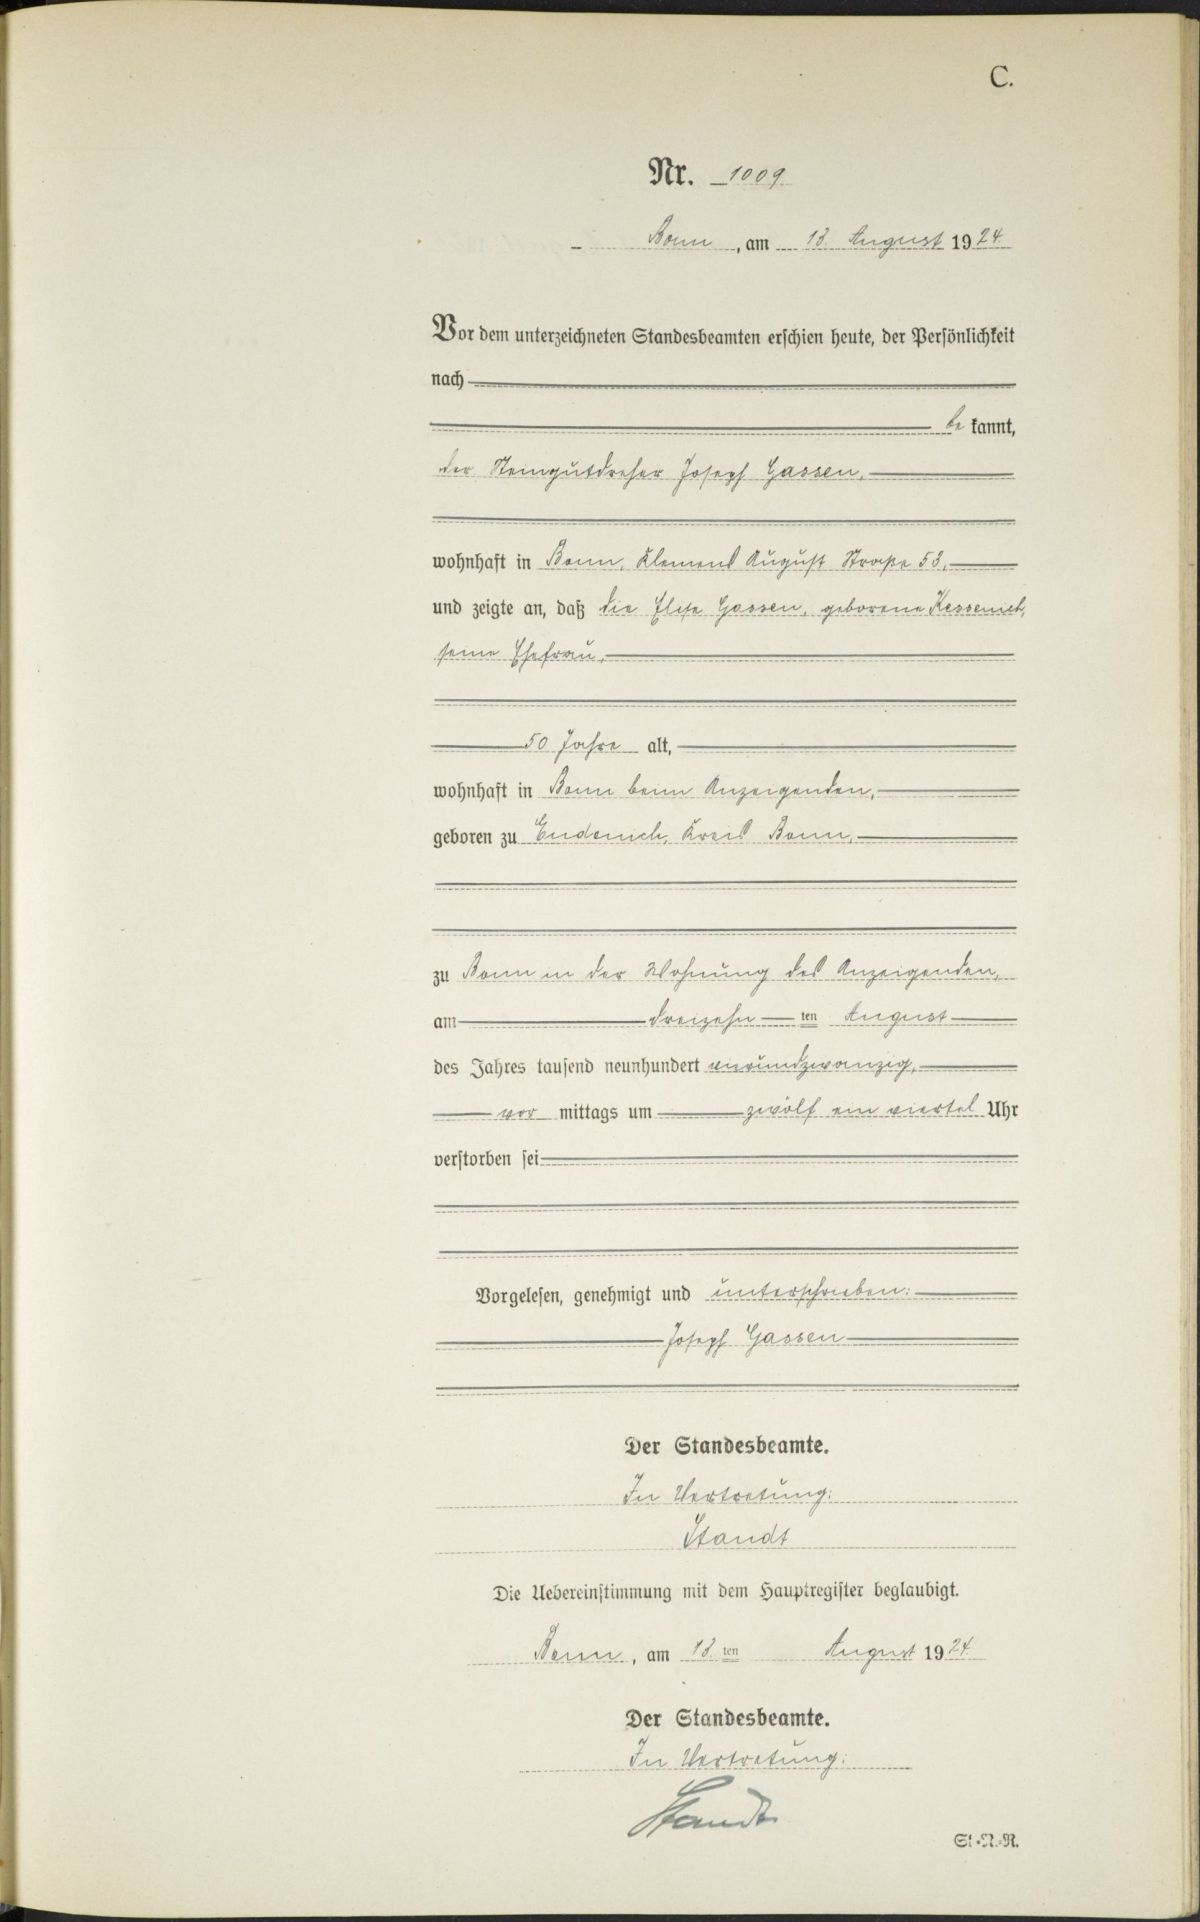 C.
Nr. 1009
Bonn, am 13. August 1924.
Vor dem unterzeichneten Standesbeamten erschien heute, der Persönlichkeit
nach
be kannt,
der Steingutdreher Joseph Gassen,
wohnhaft in Bonn, Klemens August Straße 53,
und zeigte an, daß die Elise Gassen, geborene Kessenich,
seine Ehefrau,
50 Jahre alt,
wohnhaft in Bonn beim Anzeigenden,
geboren zu Endenich, Kreis Bonn,
zu Bonn in der Wohnung des Anzeigenden,
am dreizehn ten August
des Jahres tausend neunhundert vierundzwanzig,
vor mittags um zwölf ein viertel Uhr
verstorben sei
Vorgelesen, genehmigt und unterschrieben:
Joseph Gassen
Der Standesbeamte.
In Vertretung:
Standt
Die Uebereinstimmung mit dem Hauptregister beglaubigt.
Bonn, am 13. ten August 1924.
Der Standesbeamte.
In Vertretung:
Standt
St.-N.-R.